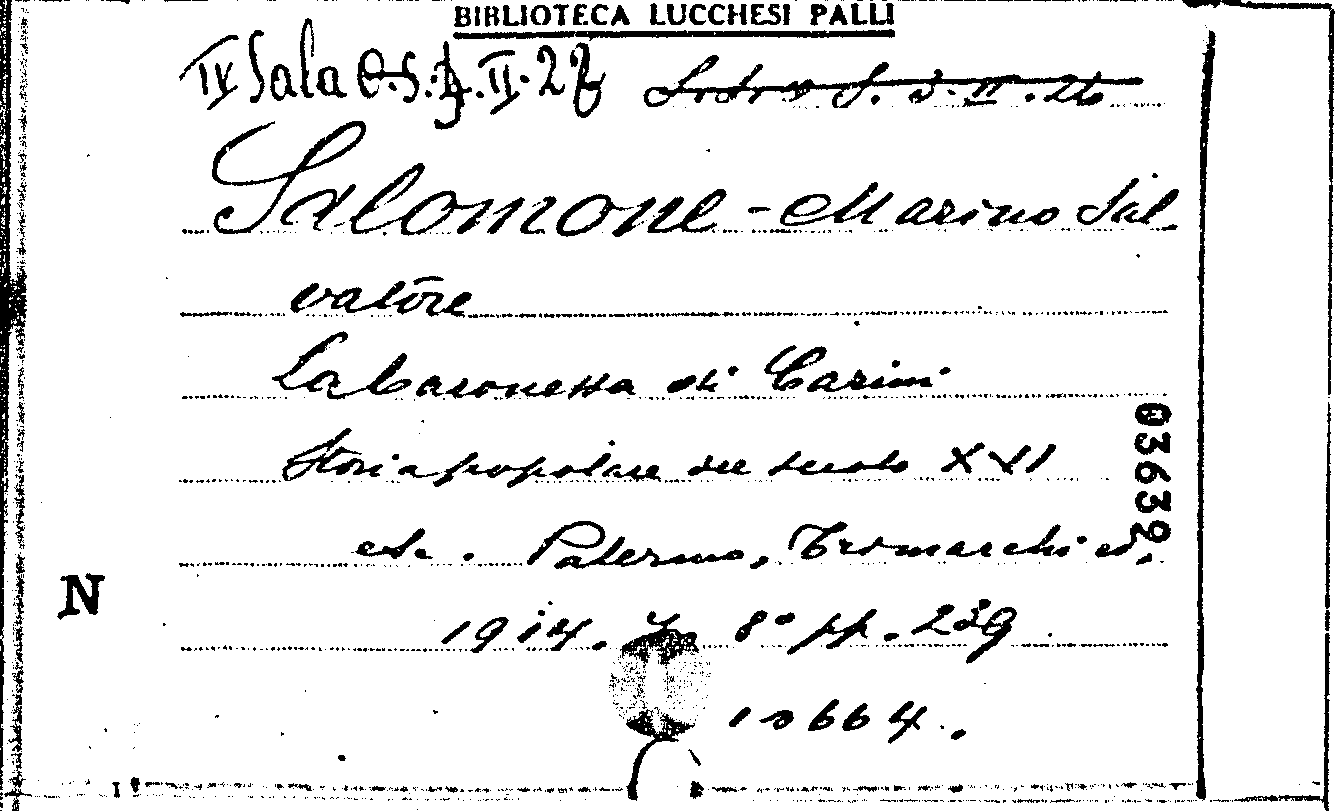 BIBLIOTECA LUCCHESI PALLI
IV Sala
Salomone - Marino Sal
vatore
La baronessa di Carini
Storia popolare del secolo XVI
etc. Palermo, Tromarchi ed.
1914. In 8° pp. 239
10664.
03632
N